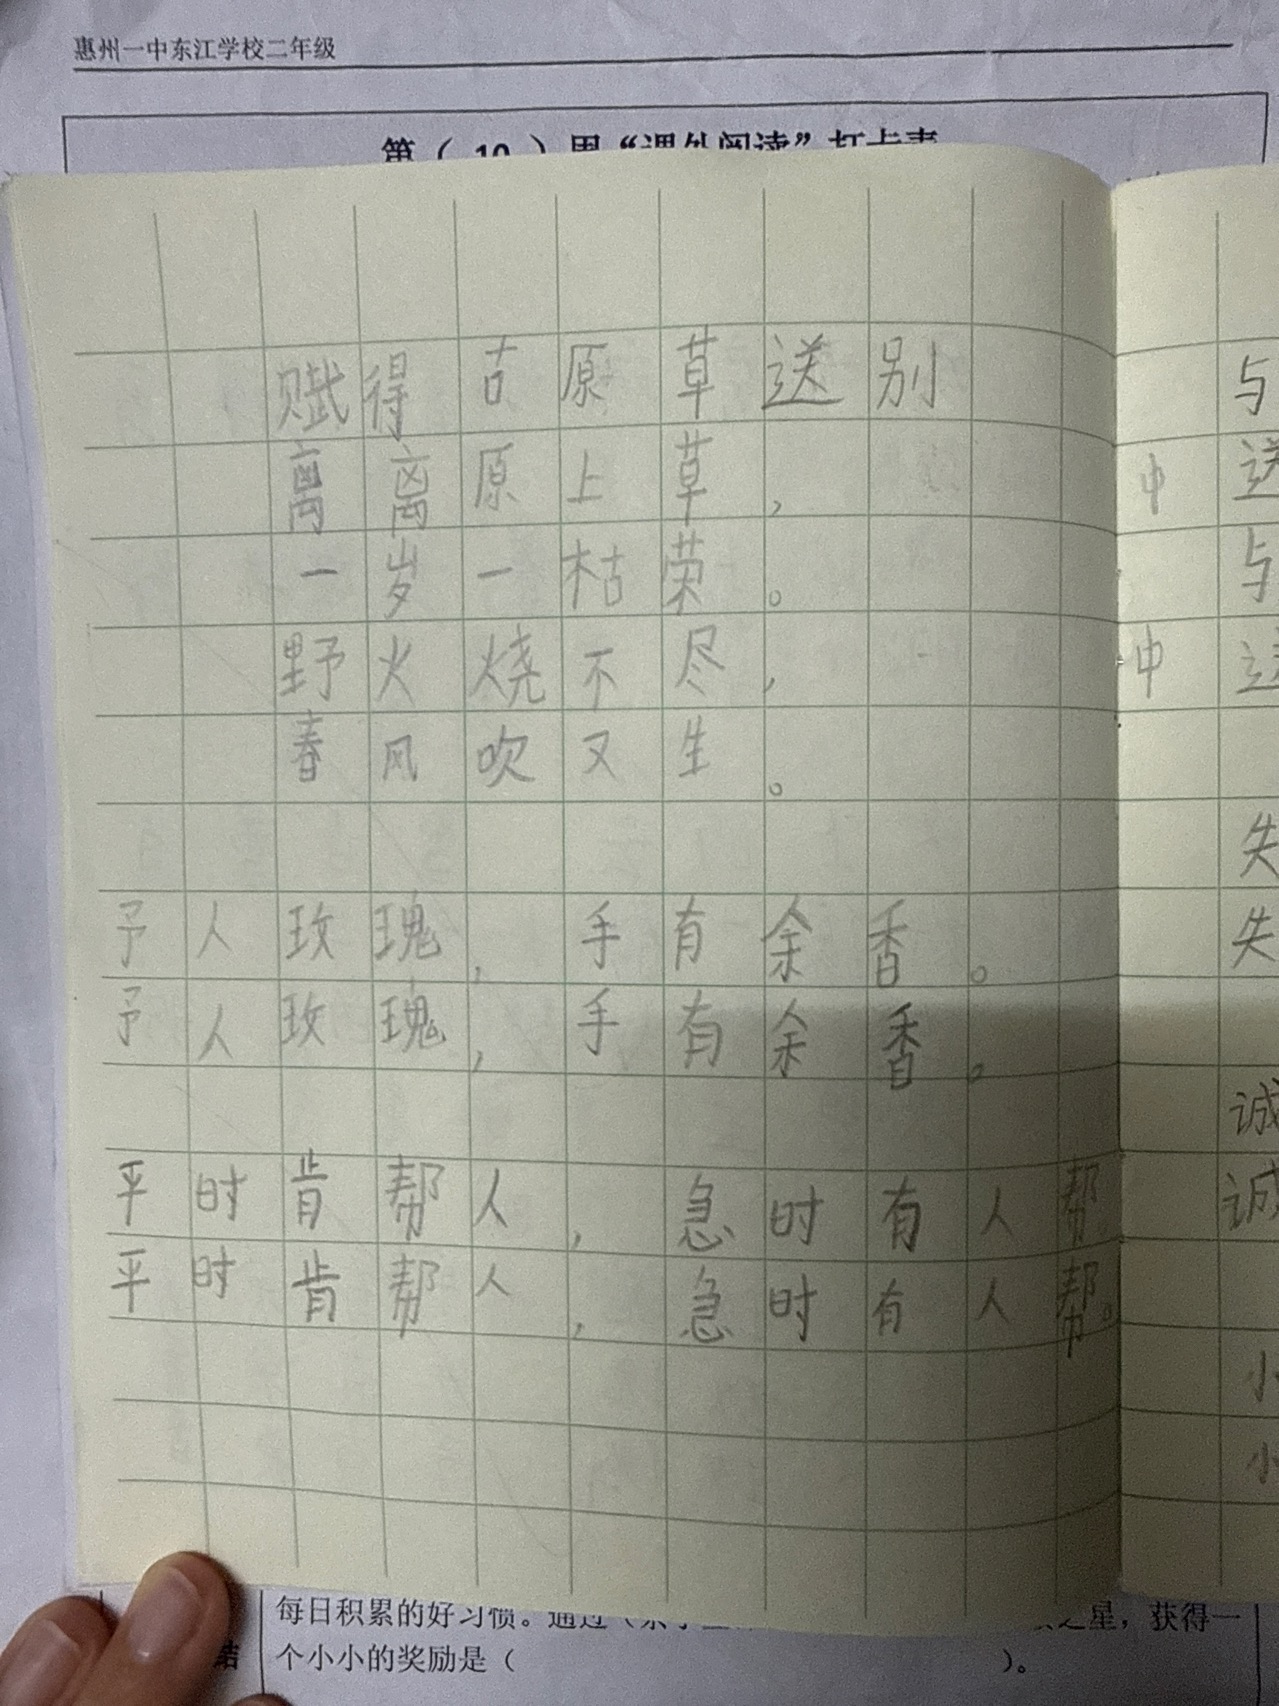 惠州一中东江学校二年级
第（ 10 ）周“课外阅读”打卡表
赋得古原草送别
离离原上草，
一岁一枯荣。
野火烧不尽，
春风吹又生。
予人玫瑰，手有余香。
予人玫瑰，手有余香。
平时肯帮人，急时有人帮。
平时肯帮人，急时有人帮。
与
中送
与
中送
失
失
诚
诚
小
小
每日积累的好习惯。通过（ 之星，获得一
结
个小小的奖励是（ ）。